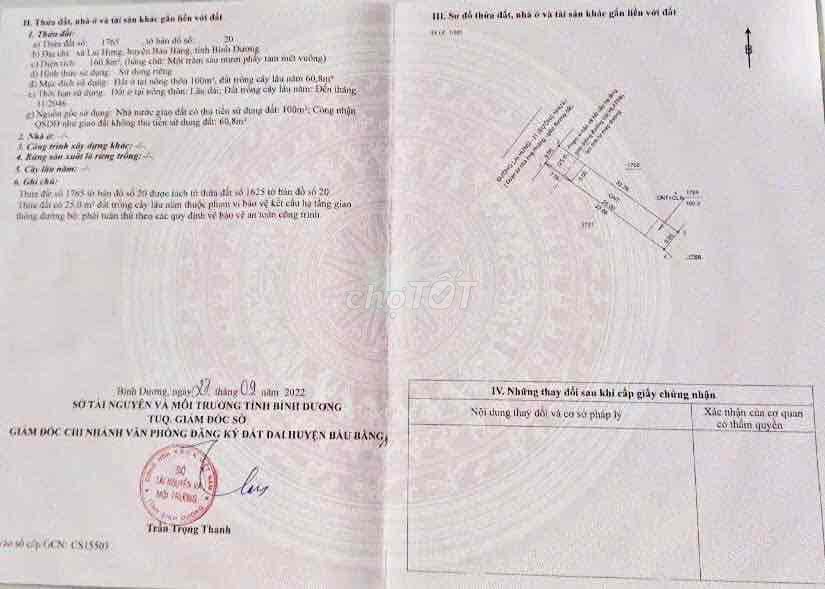 II. Thửa đất, nhà ở và tài sản khác gắn liền với đất
1. Thửa đất:
a) Thửa đất số: 1765 , tờ bản đồ số: 20
b) Địa chỉ: xã Lai Hưng, huyện Bàu Bàng, tỉnh Bình Dương
c) Diện tích: 160,8m², (bằng chữ: Một trăm sáu mươi phẩy tám mét vuông)
d) Hình thức sử dụng: Sử dụng riêng
đ) Mục đích sử dụng: Đất ở tại nông thôn 100m², đất trồng cây lâu năm 60,8m²
e) Thời hạn sử dụng: Đất ở tại nông thôn: Lâu dài; Đất trồng cây lâu năm: Đến tháng
11/2046
g) Nguồn gốc sử dụng: Nhà nước giao đất có thu tiền sử dụng đất: 100m²; Công nhận
QSDĐ như giao đất không thu tiền sử dụng đất: 60,8m²
2. Nhà ở: -/-
3. Công trình xây dựng khác: -/-
4. Rừng sản xuất là rừng trồng: -/-
5. Cây lâu năm: -/-
6. Ghi chú:
Thửa đất số 1765 tờ bản đồ số 20 được tách từ thửa đất số 1625 tờ bản đồ số 20
Thửa đất có 25.0 m² đất trồng cây lâu năm thuộc phạm vi bảo vệ kết cấu hạ tầng giao
thông đường bộ; phải tuân thủ theo các quy định về bảo vệ an toàn công trình
Bình Dương, ngày 27 tháng 09 năm 2022
SỞ TÀI NGUYÊN VÀ MÔI TRƯỜNG TỈNH BÌNH DƯƠNG
TUQ. GIÁM ĐỐC SỞ
GIÁM ĐỐC CHI NHÁNH VĂN PHÒNG ĐĂNG KÝ ĐẤT ĐAI HUYỆN BÀU BÀNG
SỞ
TÀI NGUYÊN VÀ
MÔI TRƯỜNG
TỈNH BÌNH DƯƠNG
Trần Trọng Thanh
vào sổ cấp GCN: CS15503
III. Sơ đồ thửa đất, nhà ở và tài sản khác gắn liền với đất
B
1766
ONT
ONT+CLN
1767
chợTỐT
IV. Những thay đổi sau khi cấp giấy chứng nhận
Nội dung thay đổi và cơ sở pháp lý
Xác nhận của cơ quan
có thẩm quyền